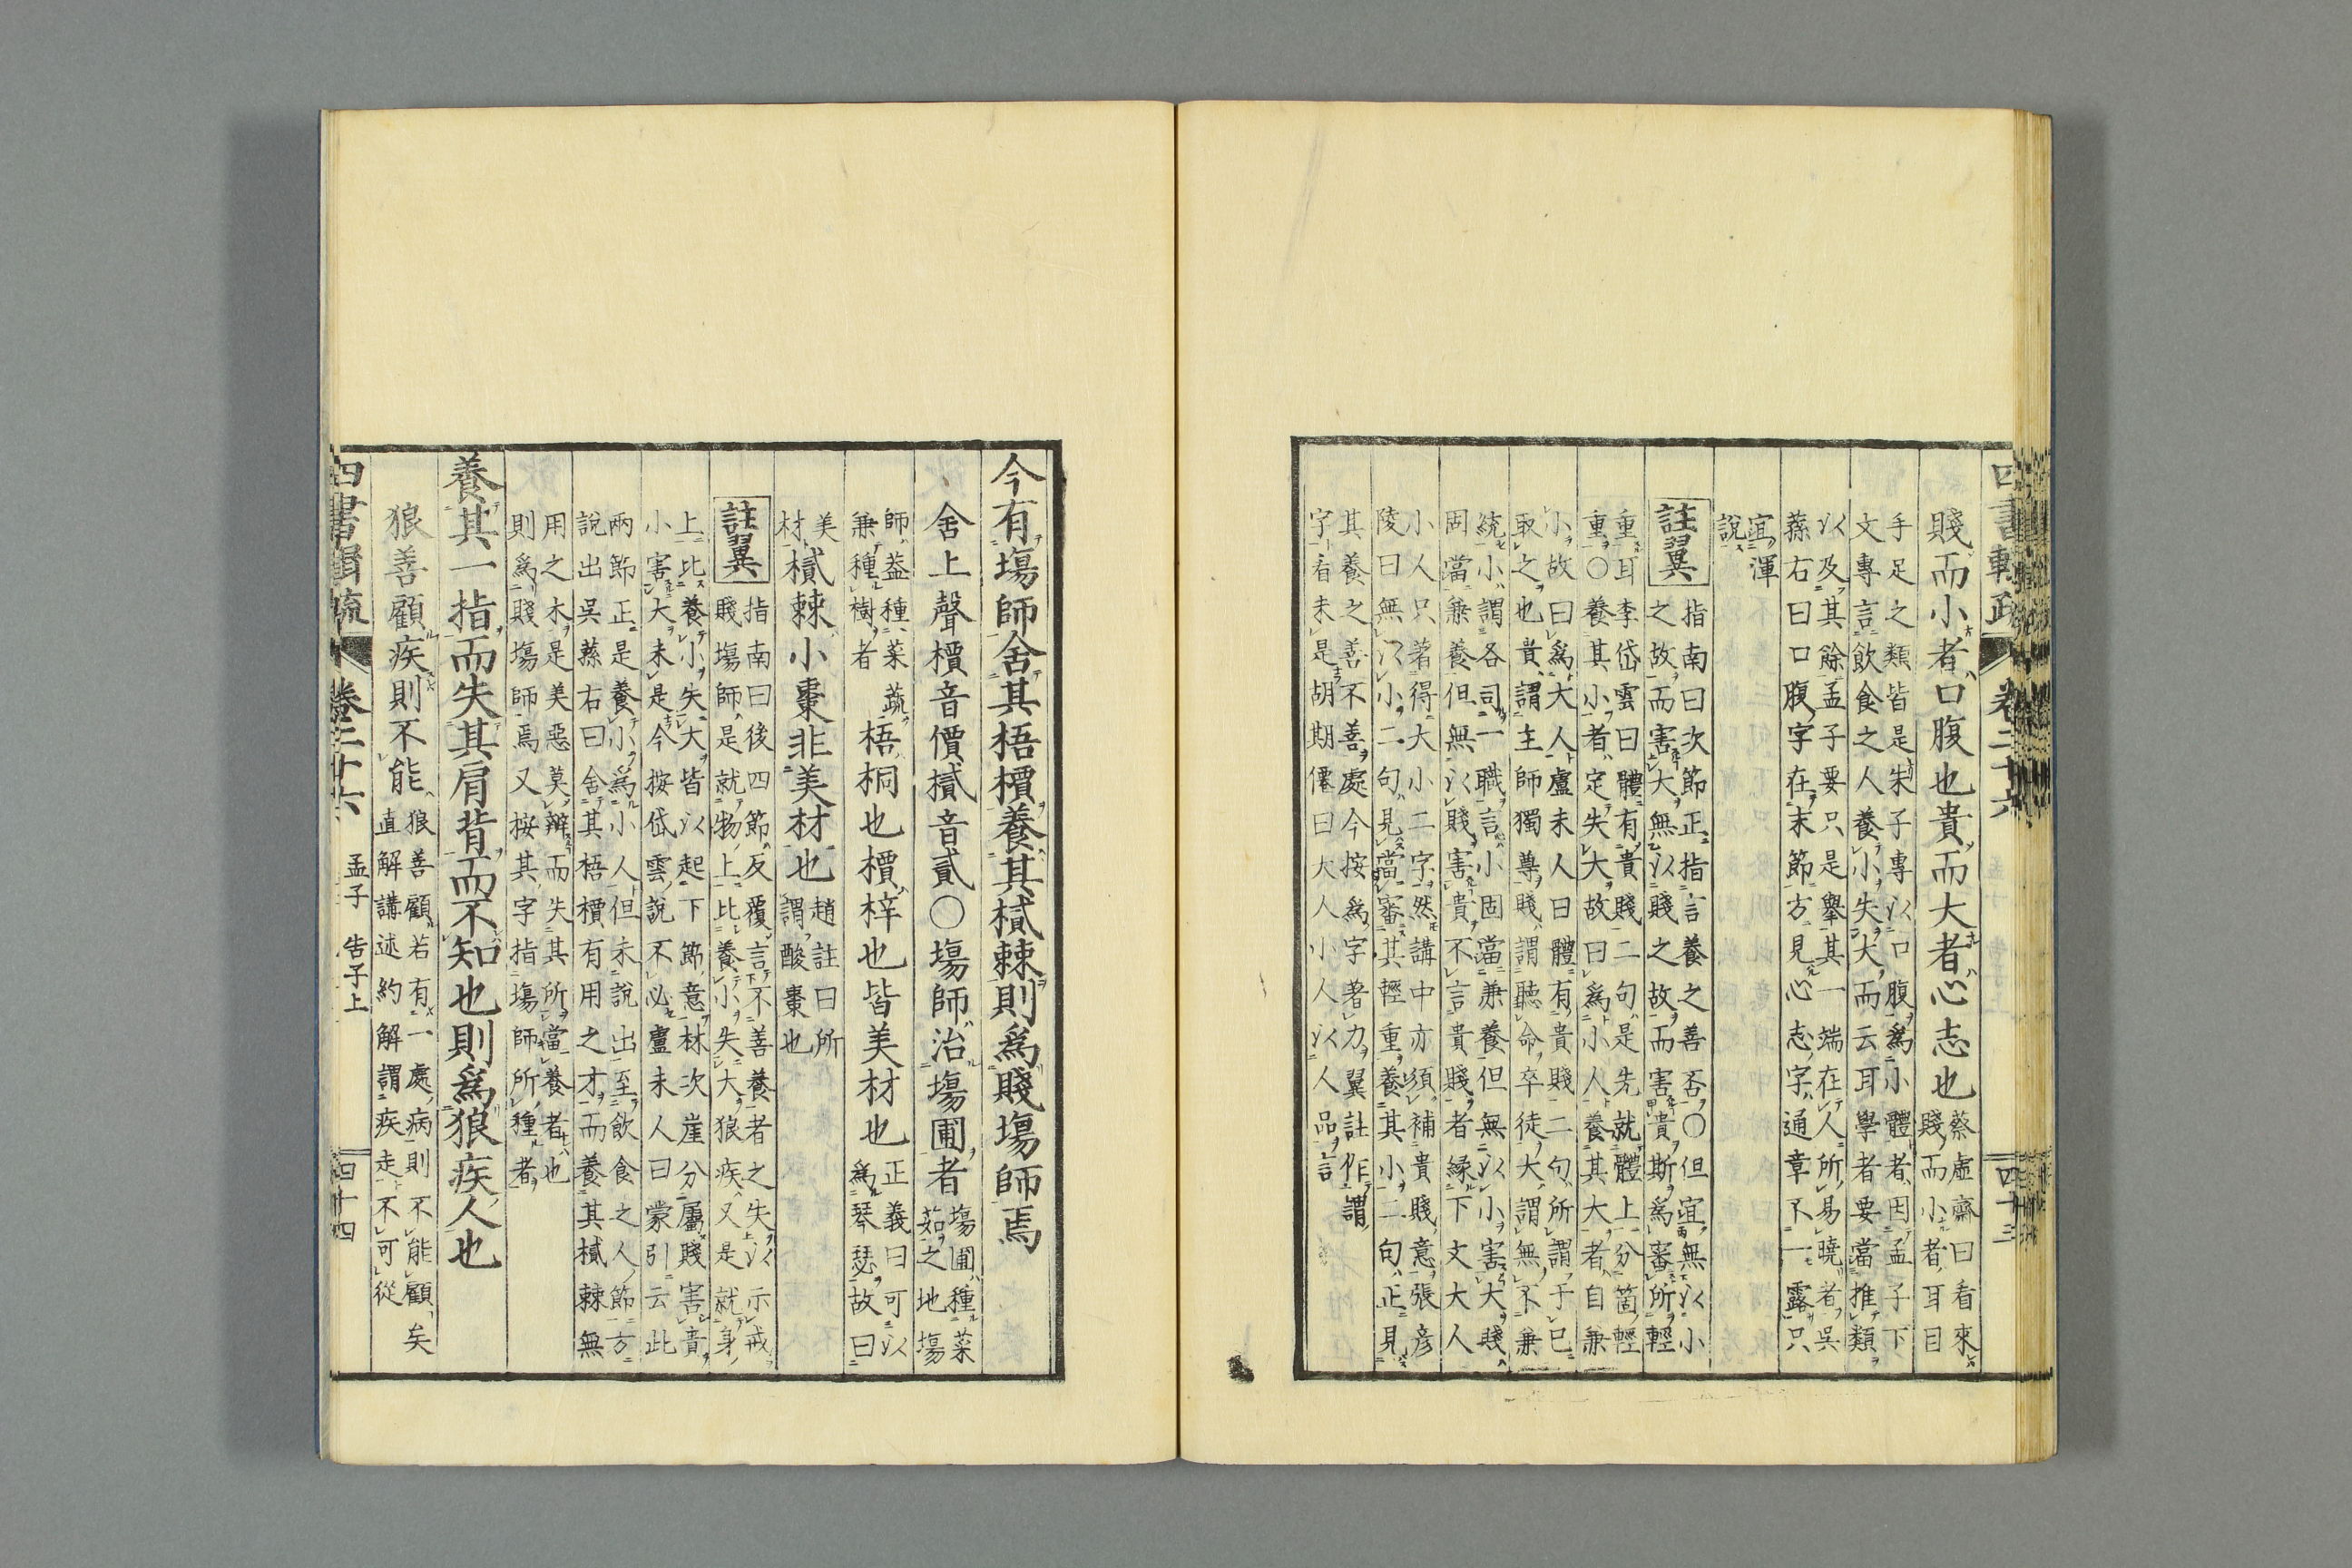 四書輯疏 卷二十六 四十三
賤而小者口腹也貴而大者心志也
蔡虛齋曰看來
賤而小者耳目
手足之類皆是朱子專以口腹爲小體者因孟子下
文專言飲食之人養小失大而云耳學者要當推類
以及其餘孟子要只是擧其一端在人所易曉者吳
蓀右曰口腹字在末節方見心志字通章不一露只
宜渾
說
註翼
指南曰次節正指言養之善否〇但宜無以小
之故而害大無以賤之故而害貴斯爲審所輕
重耳李岱雲曰體有貴賤二句是先就體上分箇輕
重〇養其小者定失大故曰爲小人養其大者自兼
小故曰爲大人盧未人曰體有貴賤二句所謂予已
取之也貴謂主師獨尊賤謂聽命卒徒大謂無不兼
統小謂各司一職言小固當兼養但無以小害大賤
固當兼養但無以賤害貴不言貴賤者緣下文大人
小人只著得大小二字然講中亦須補貴賤意張彥
陵曰無以小二句見當審其輕重養其小二句正見
其養之善不善處今按爲字者力翼註作謂
字看未是胡期僊曰大人小人以人品言
今有場師舍其梧檟養其樲棘則爲賤場師焉
舍上聲檟音價樲音貳〇場師治場圃者
場圃種菜
茹之地場
師益種菜蔬
兼種樹者
梧桐也檟梓也皆美材也
正義曰可以
爲琴瑟故曰
美
材
樲棘小棗非美材也
趙註曰所
謂酸棗也
註翼
指南曰後四節反覆言不善養者之失以示戒
賤場師是就物上比養小失大狼疾又是就身
上比養小失大皆以起下節意林次崖分屬賤害意
小害大未是今按岱雲說不必盧未人曰蒙引云此
兩節正是養小爲小人但未說出至飲食之人節方
說出吳蓀右曰舍其梧檟有用之才而養其樲棘無
用之木是美惡莫辨而失其所當養者也
則爲賤場師焉又按其字指場師所種者
養其一指而失其肩背而不知也則爲狼疾人也
狼善顧疾則不能
狼善顧若有一處病則不能顧矣
直解講述約解謂疾走不可從
四書輯疏 卷二十六 孟子 告子上 四十四